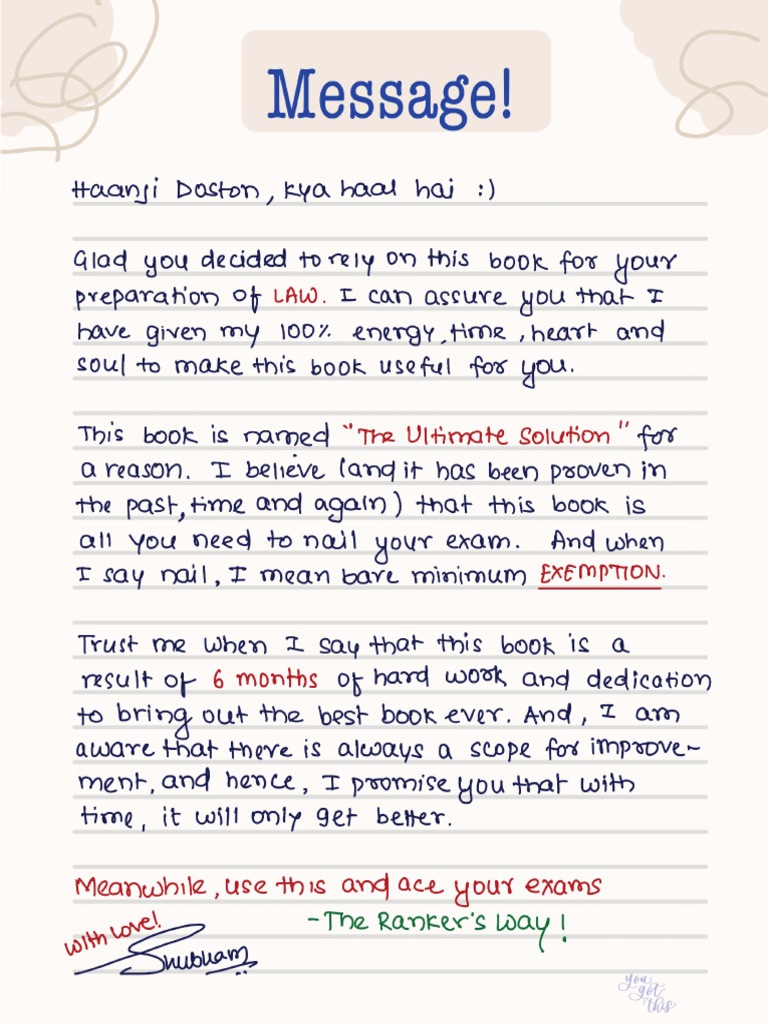 Message!
Haanji Doston, kya haal hai :)
Glad you decided to rely on this book for your
preparation of LAW. I can assure you that I
have given my 100% energy, time, heart and
soul to make this book useful for you.
This book is named "The Ultimate Solution" for
a reason. I believe (and it has been proven in
the past, time and again) that this book is
all you need to nail your exam. And when
I say nail, I mean bare minimum EXEMPTION.
Trust me when I say that this book is a
result of 6 months of hard work and dedication
to bring out the best book ever. And, I am
aware that there is always a scope for improve-
ment, and hence, I promise you that with
time, it will only get better.
Meanwhile, use this and ace your exams
-The Ranker's Way!
With Love!
Shubham
you
got
this